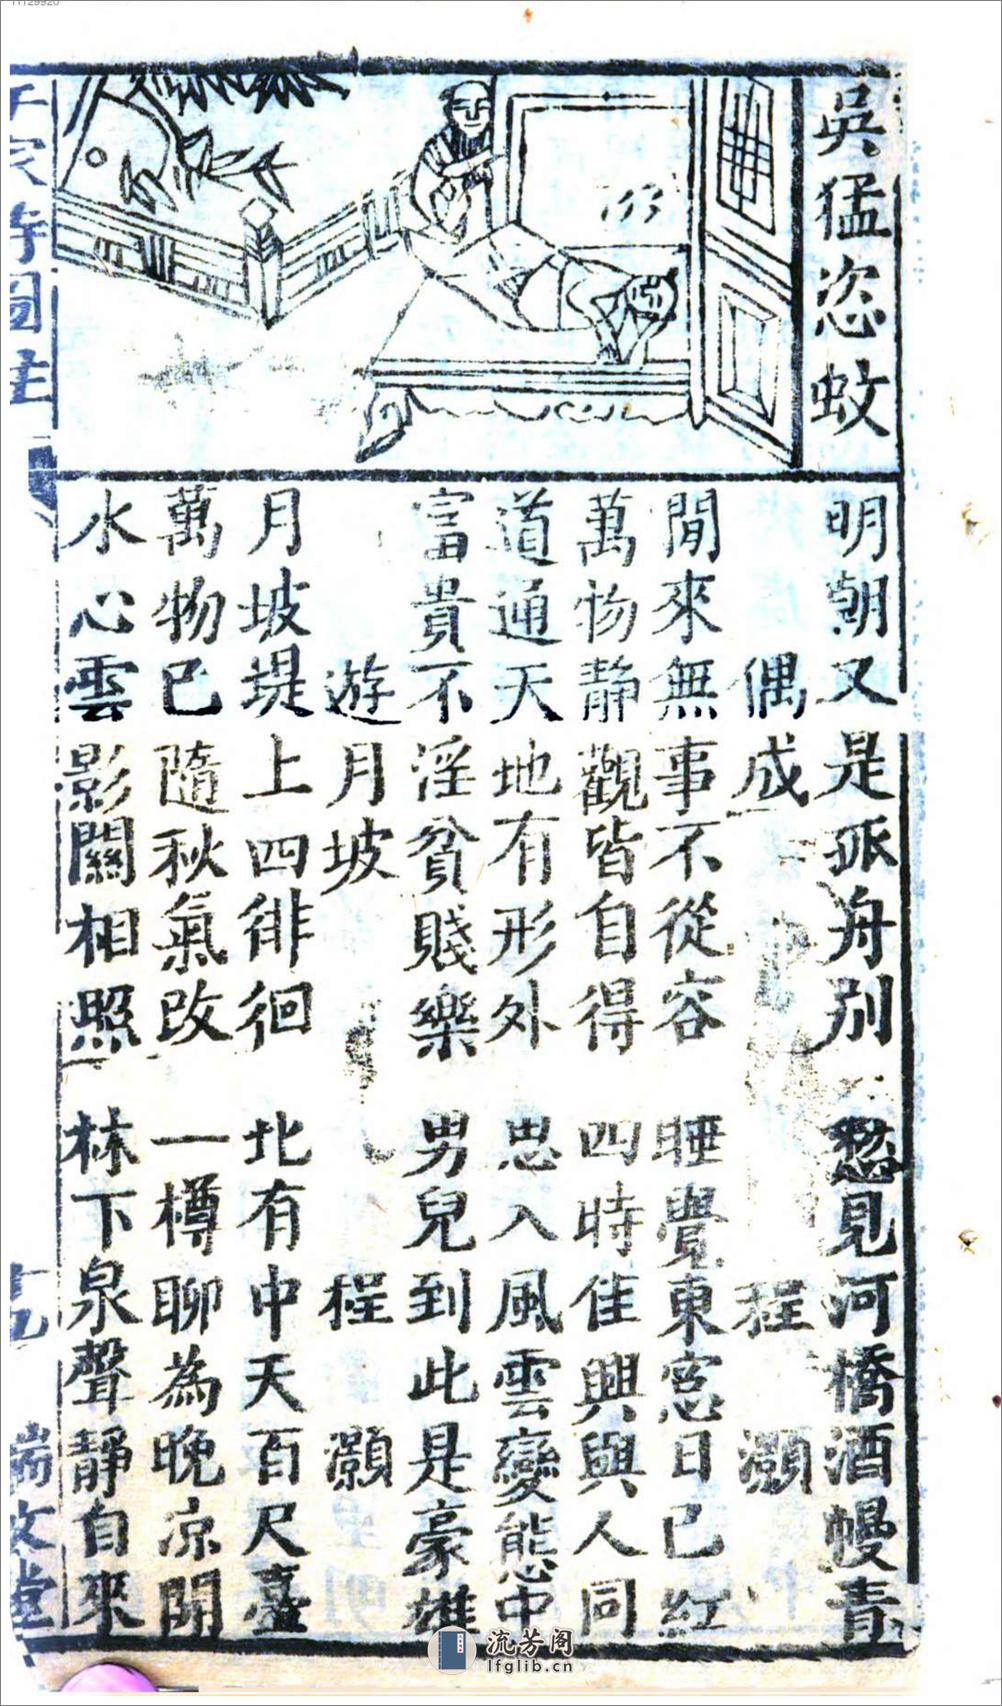 吳猛恣蚊
明朝又是孤舟別 愁見河橋酒幔青
偶成 程顥
閒來無事不從容 睡覺東窓日已紅
萬物靜觀皆自得 四時佳興與人同
道通天地有形外 思入風雲變態中
富貴不淫貧賤樂 男兒到此是豪雄
遊月坡 程顥
月坡堤上四徘徊 北有中天百尺臺
萬物已隨秋氣改 一樽聊為晚凉開
水心雲影闗相照 林下泉聲靜自來
千家詩圖註
十九
瑞文堂
流芳阁
lfglib.cn